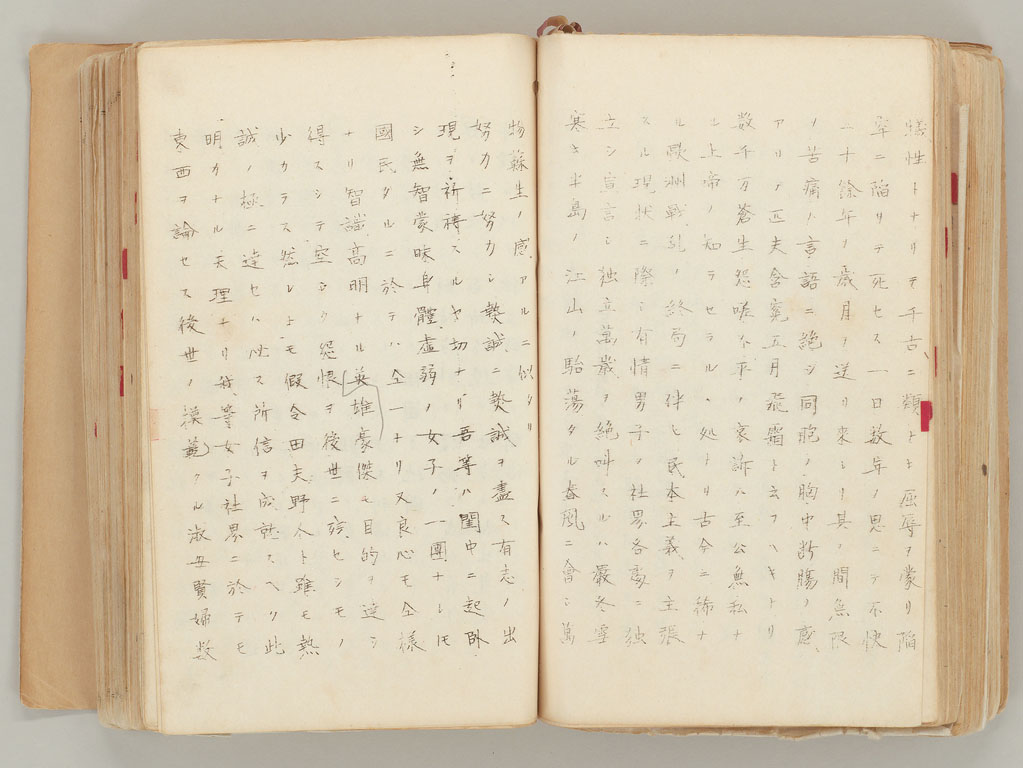 犠牲トナリテ千古ニ類ナキ屈辱ヲ蒙リ陥
穽ニ陥リテ死セス一日数年ノ思ニテ不快
二十餘年ノ歳月ノ送リ來シリ其ノ間無限
ノ苦痛ノ言語ニ絶シ同胞ノ胸中断腸ノ感
アリノ匹夫含寃五月飛霜ト云フヘキナリ
数千万蒼生怨嗟不平ノ哀訴ハ至公無私ナ
ル上帝ノ知ラセラルヽ処ナリ古今ニ稀ナ
ル歐洲戰乱ノ終局ニ伴ヒ民本主義ヲ主張
スル現状ニ際シ有情男子ノ社界各處ニ独
立シ宣言シ独立萬歳ヲ絶叫スルハ嚴冬雪
寒キ半島ノ江山ノ駘蕩タル春風ニ會シ萬
物蘇生ノ感アルニ似タリ
努力ニ努力シ熱誠ニ熱誠ヲ盡ス有志ノ出
現ヲ祈祷スルヤ切ナリ吾等ハ閨中ニ起臥
シ無智蒙昧身體虚弱ノ女子ノ一團ナレトモ
國民タルニ於テハ仝一ナリ又良心モ仝様
ナリ智識高明ナル英雄豪傑モ目的ヲ達シ
得スシテ空シク怨恨ヲ後世ニ殘セシモノ
少カラス然レトモ假令田夫野人ト雖モ熱
誠ノ極ニ達セハ必ス所信ヲ成就スヘク此
明カナル天理ナリ我等女子社界ニ於テモ
東西ヲ論セス後世ノ模範タル淑女賢婦数